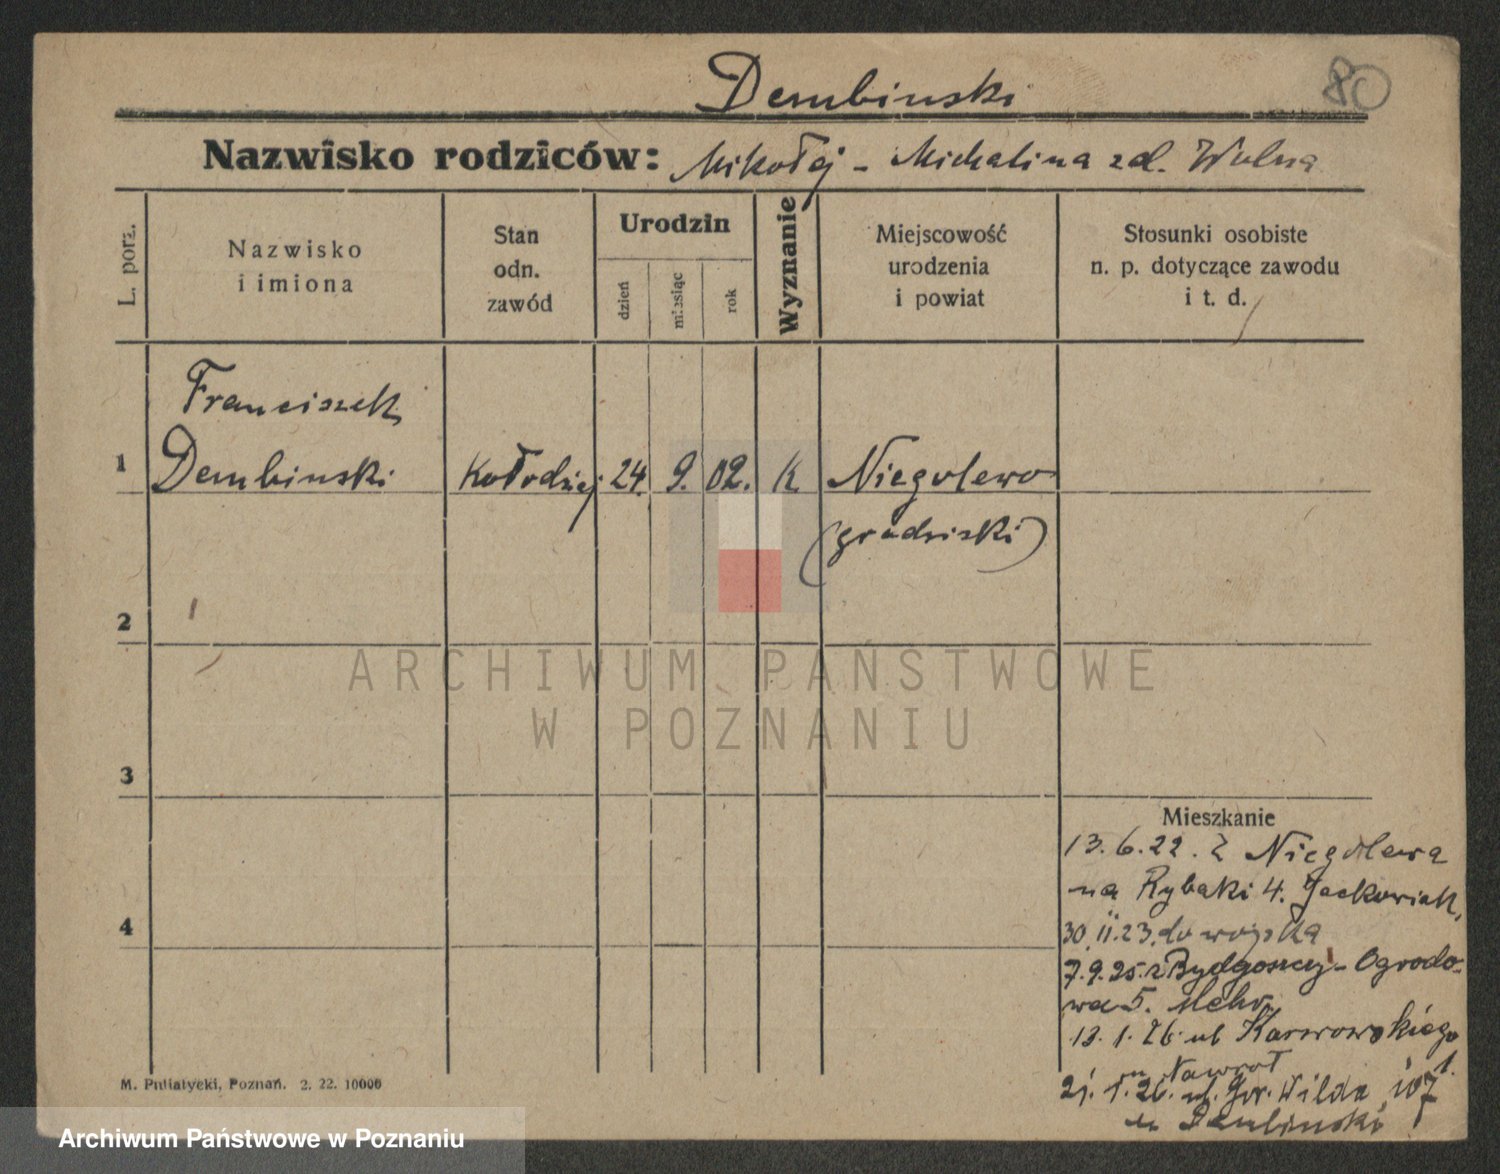 Dembinski
80
Nazwisko rodziców: Mikołej - Michalina zd. Wolna
L. porz.
Nazwisko
i imiona
Stan
odn.
zawód
Urodzin
dzień
miesiąc
rok
Wyznanie
Miejscowość
urodzenia
i powiat
Stosunki osobiste
n. p. dotyczące zawodu
i t. d.
1
Franciszek
Dembinski
Kołodziej
24.
9.
02.
K
Niegolewo
(grodziski)
2
3
4
ARCHIWUM PAŃSTWOWE
W POZNANIU
Mieszkanie
13.6.22. z Niegolewa
na Rybaki 4. Jackowiak,
30.II.23. do wojska
7.9.25. z Bydgoszczy - Ogrodo-
wa 5.
13.1.26. ul Karwowskiego 1.
u Nawrot
21.1.26. ul. Gór. Wilda 107
u Dembinski
M. Putiatycki, Poznań. 2. 22. 10000
Archiwum Państwowe w Poznaniu